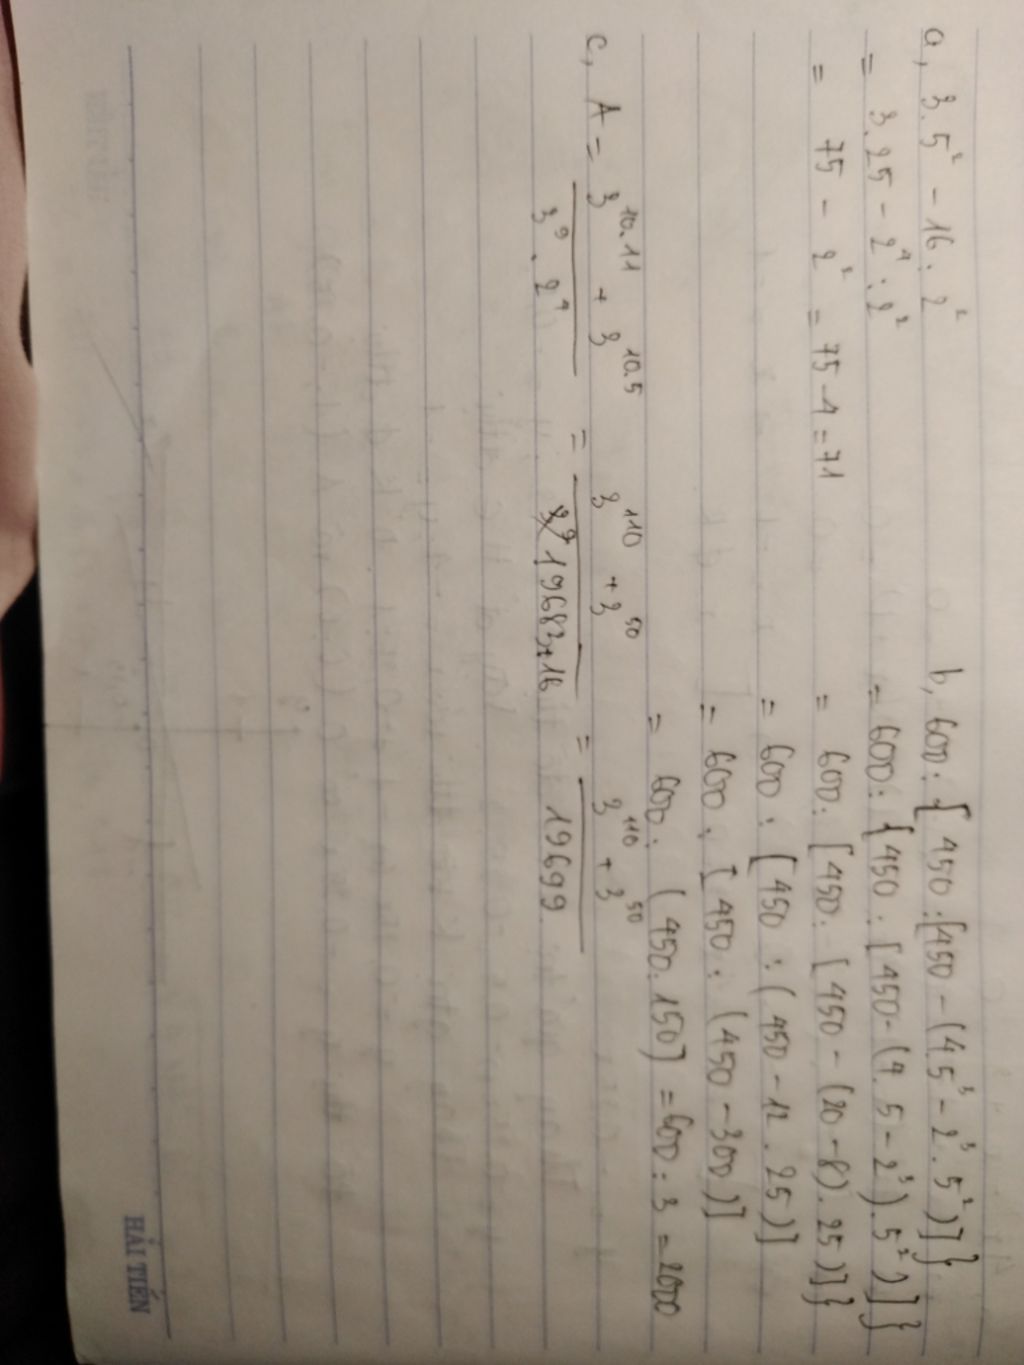 a, 3.5² - 16 : 2²
= 3.25 - 2⁴ : 2²
= 75 - 2² = 75 - 4 = 71
b, 600 : { 450 : [450 - (4.5³ - 2³. 5²)] }
= 600 : {450 : [450 - (4. 5 - 2³) . 5²)] }
= 600 : [450 : [450 - (20 - 8) . 25)] }
= 600 : [450 : (450 - 12 . 25)]
= 600 : [450 : (450 - 300)]
= 600 : (450 : 150) = 600 : 3 = 2000
c, A = (3^10.11 + 3^10.5) / (3⁹ . 2⁴) = (3^110 + 3^50) / (19683+16) = (3^110 + 3^50) / 19699
HẢI TIẾN